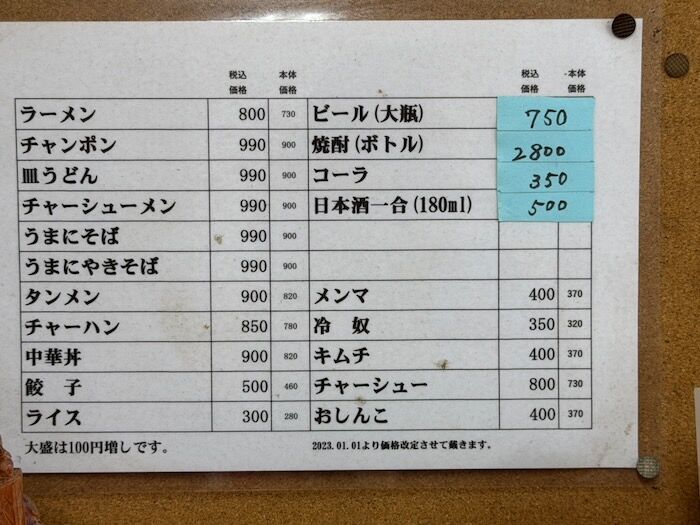 税込 本体 税込 本体
価格 価格 価格 価格
ラーメン 800 730 ビール(大瓶) 750
チャンポン 990 900 焼酎(ボトル) 2800
皿うどん 990 900 コーラ 350
チャーシューメン 990 900 日本酒一合(180ml) 500
うまにそば 990 900
うまにやきそば 990 900
タンメン 900 820 メンマ 400 370
チャーハン 850 780 冷 奴 350 320
中華丼 900 820 キムチ 400 370
餃 子 500 460 チャーシュー 800 730
ライス 300 280 おしんこ 400 370
大盛は100円増しです。 2023.01.01より価格改定させて戴きます。